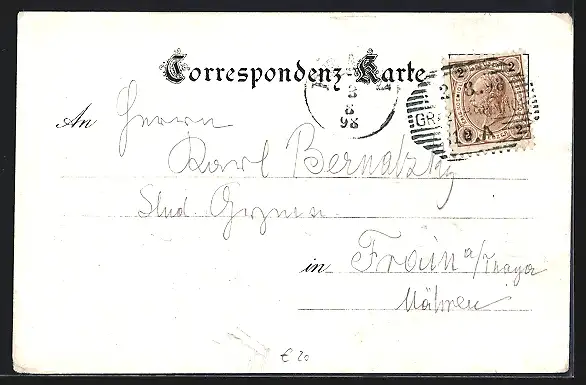 Correspondenz-Karte
2 2
2 8.98
GR
9.A
2 2
3
8
98
An Herrn
Karl Bernatzky
Stud Gymn
in Frain a/Thaya
Mähren
€ 20